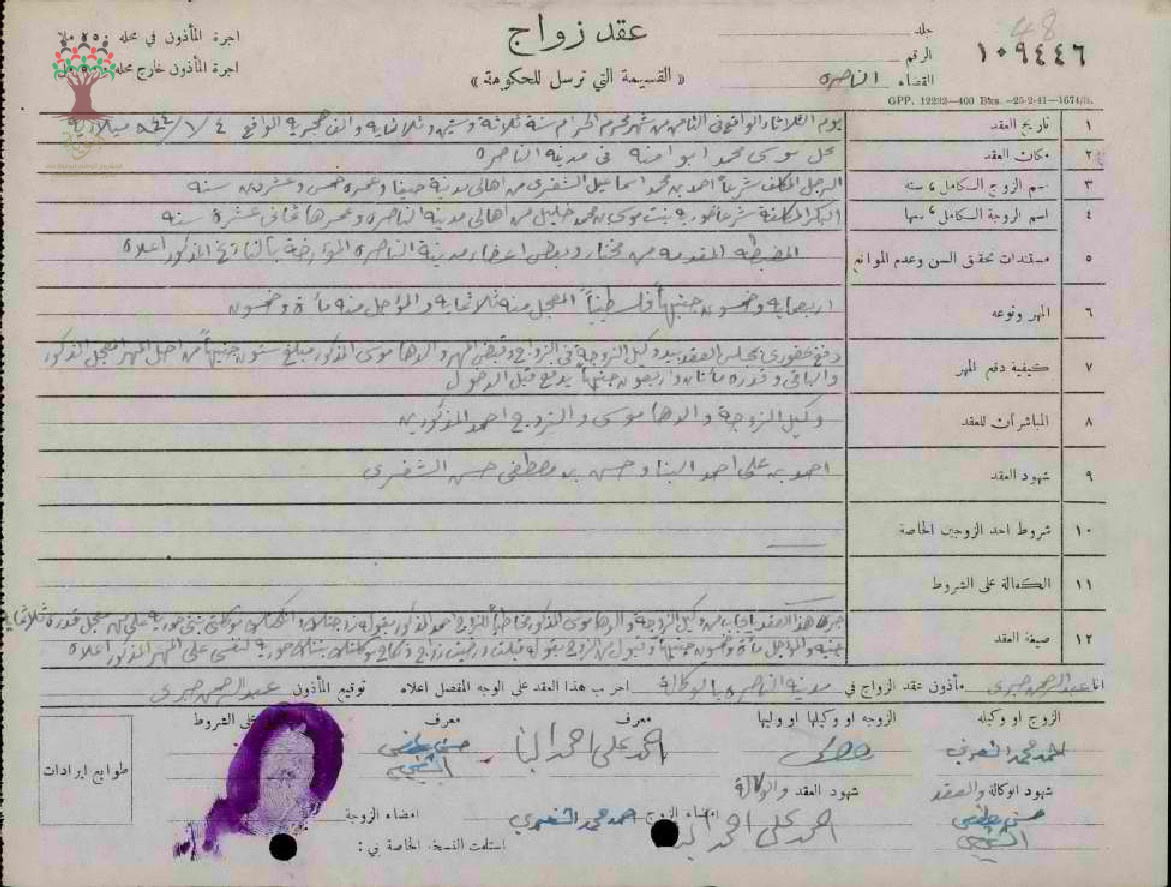 48
عقد زواج
« القسيمة التي ترسل للحكومة »
اجرة المأذون في محله ٢٥٠ ملا
اجرة المأذون خارج محله
جلد
الرقم ١٠٩٤٤٦
القضاء الناصره
GPP. 12232—400 Bks.—25-2-41—1674/S.
١ تاريخ العقد يوم الثلاثاء الواقع في الثامن من شهر محرم الحرام سنة ثلاثة وستين وثلاثمايه والف هجريه الواقع ٤ / ١ / ميلاديه
٢ مكان العقد محل موسى محمد ابو امنه في مدينة الناصره
٣ اسم الزوج الكامل وسنه الرجل المكلف شرعاً احمد بن محمد اسماعيل من اهالي مدينة حيفا وعمره خمس وعشرون سنه
٤ اسم الزوجة الكامل وسنها البكر المكلفة شرعا حوريه بنت موسى بن محمد خليل من اهالي مدينة الناصره وعمرها ثماني عشرة سنه
٥ مستندات تحقق السن وعدم الموانع المضبطه المقدمه من مختار وبعض اعضاء مدينة الناصره المؤرخة بالتاريخ المذكور اعلاه
٦ المهر ونوعه اربعمايه وخمسون جنيهاً فلسطينياً المعجل منه ثلاثمايه والمؤجل منه مأة وخمسون
٧ كيفية دفع المهر دفع بحضوري بمجلس العقد بيد وكيل الزوجة في الزواج وقبض المهر والدها موسى المذكور مبلغ ستون جنيهاً من اصل المهر المعجل المذكور
والباقي وقدره مأتان واربعون جنيهاً يدفع قبل الدخول
٨ المباشران للعقد وكيل الزوجة والدها موسى والزوج احمد المذكورين
٩ شهود العقد احمد بن علي احمد البنا وحسن بن مصطفى حسن
١٠ شروط احد الزوجين الخاصة
١١ الكفالة على الشروط
١٢ صيغة العقد جرى هذا العقد بايجاب من وكيل الزوجة والدها موسى المذكور مخاطباً الزوج احمد المذكور بقوله زوجتك وانكحتك موكلتي بنتي حوريه على مهر معجل قدره ثلاثمايه
جنيه والمؤجل مأة وخمسون جنيهاً وقبول من الزوج بقوله قبلت ورضيت زواج ونكاح موكلتك بنتك حورية لنفسي على المهر المذكور اعلاه
انا عبد الرحمن مأذون عقد الزواج في مدينة الناصره بالوكالة اجريت هذا العقد على الوجه المفصل اعلاه توقيع المأذون عبد الرحمن
الزوج او وكيله الزوجه او وكيلها او وليها معرف معرف على الشروط
احمد محمد موسى احمد علي احمد البنا
شهود الوكالة والعقد شهود العقد والوكالة
احمد علي احمد البنا
امضاء الزوج احمد محمد
امضاء الزوجة
استلمت النسخة الخاصة بي :
طوابع ايرادات